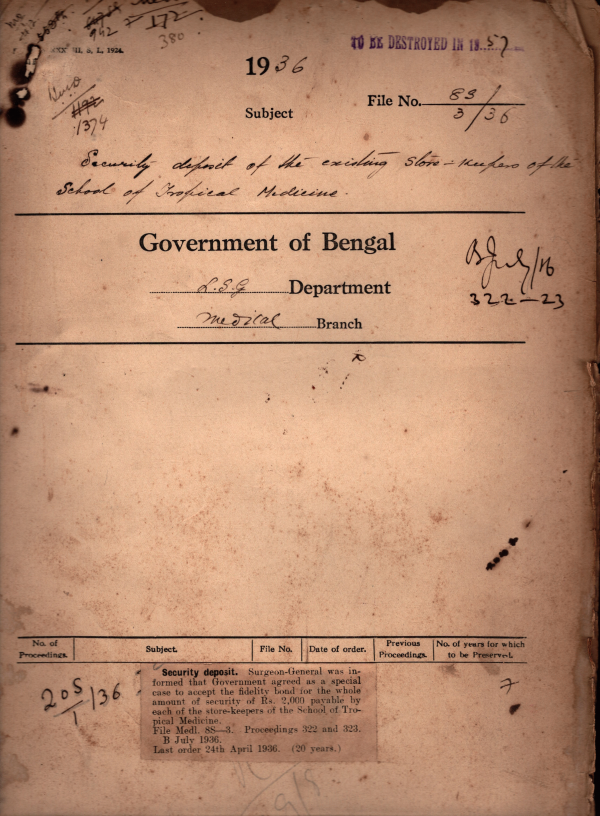 172
380
S. L., 1924.
TO BE DESTROYED IN 1957
1374
1936
Subject
File No. 8S/3/36
Security deposit of the existing Store-keepers of the
School of Tropical Medicine.
Government of Bengal
L.S.G Department
Medical Branch
B July/36
322-23
No. of Proceedings.
Subject.
File No.
Date of order.
Previous Proceedings.
No. of years for which to be Preserved.
205/1/36
Security deposit. Surgeon-General was in-
formed that Government agreed as a special
case to accept the fidelity bond for the whole
amount of security of Rs. 2,000 payable by
each of the store-keepers of the School of Tro-
pical Medicine.
File Medl. 8S—3. Proceedings 322 and 323.
B July 1936.
Last order 24th April 1936. (20 years.)